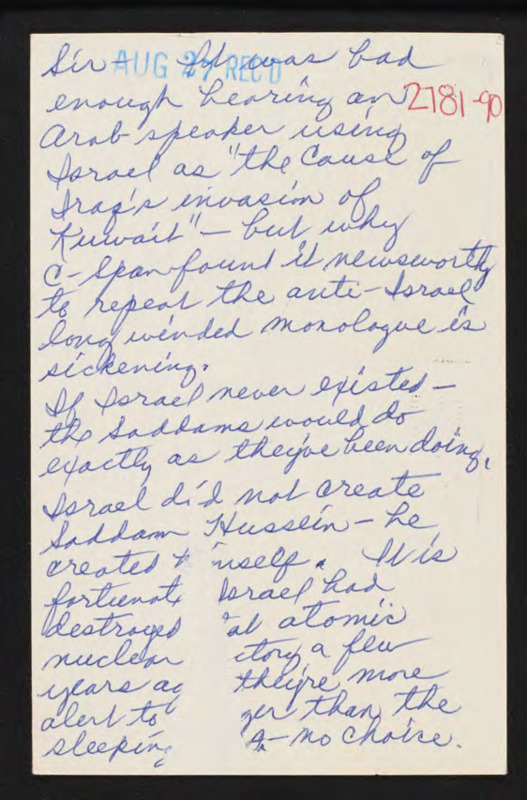 AUG 27 REC'D
2781-90
Sir - It was bad
enough hearing an
Arab speaker using
Israel as "the cause of
Iraq's invasion of
Kuwait" - but why
C-Span found it newsworthy
to repeat the anti-Israel
long winded monologue is
sickening.
If Israel never existed -
the Saddams would do
exactly as they've been doing.
Israel did not create
Saddam Hussein - he
created nself. It is
fortunate Israel had
destroyed at atomic
nuclear tory a few
years ag they're more
alert to ger than the
sleeping - no choice.